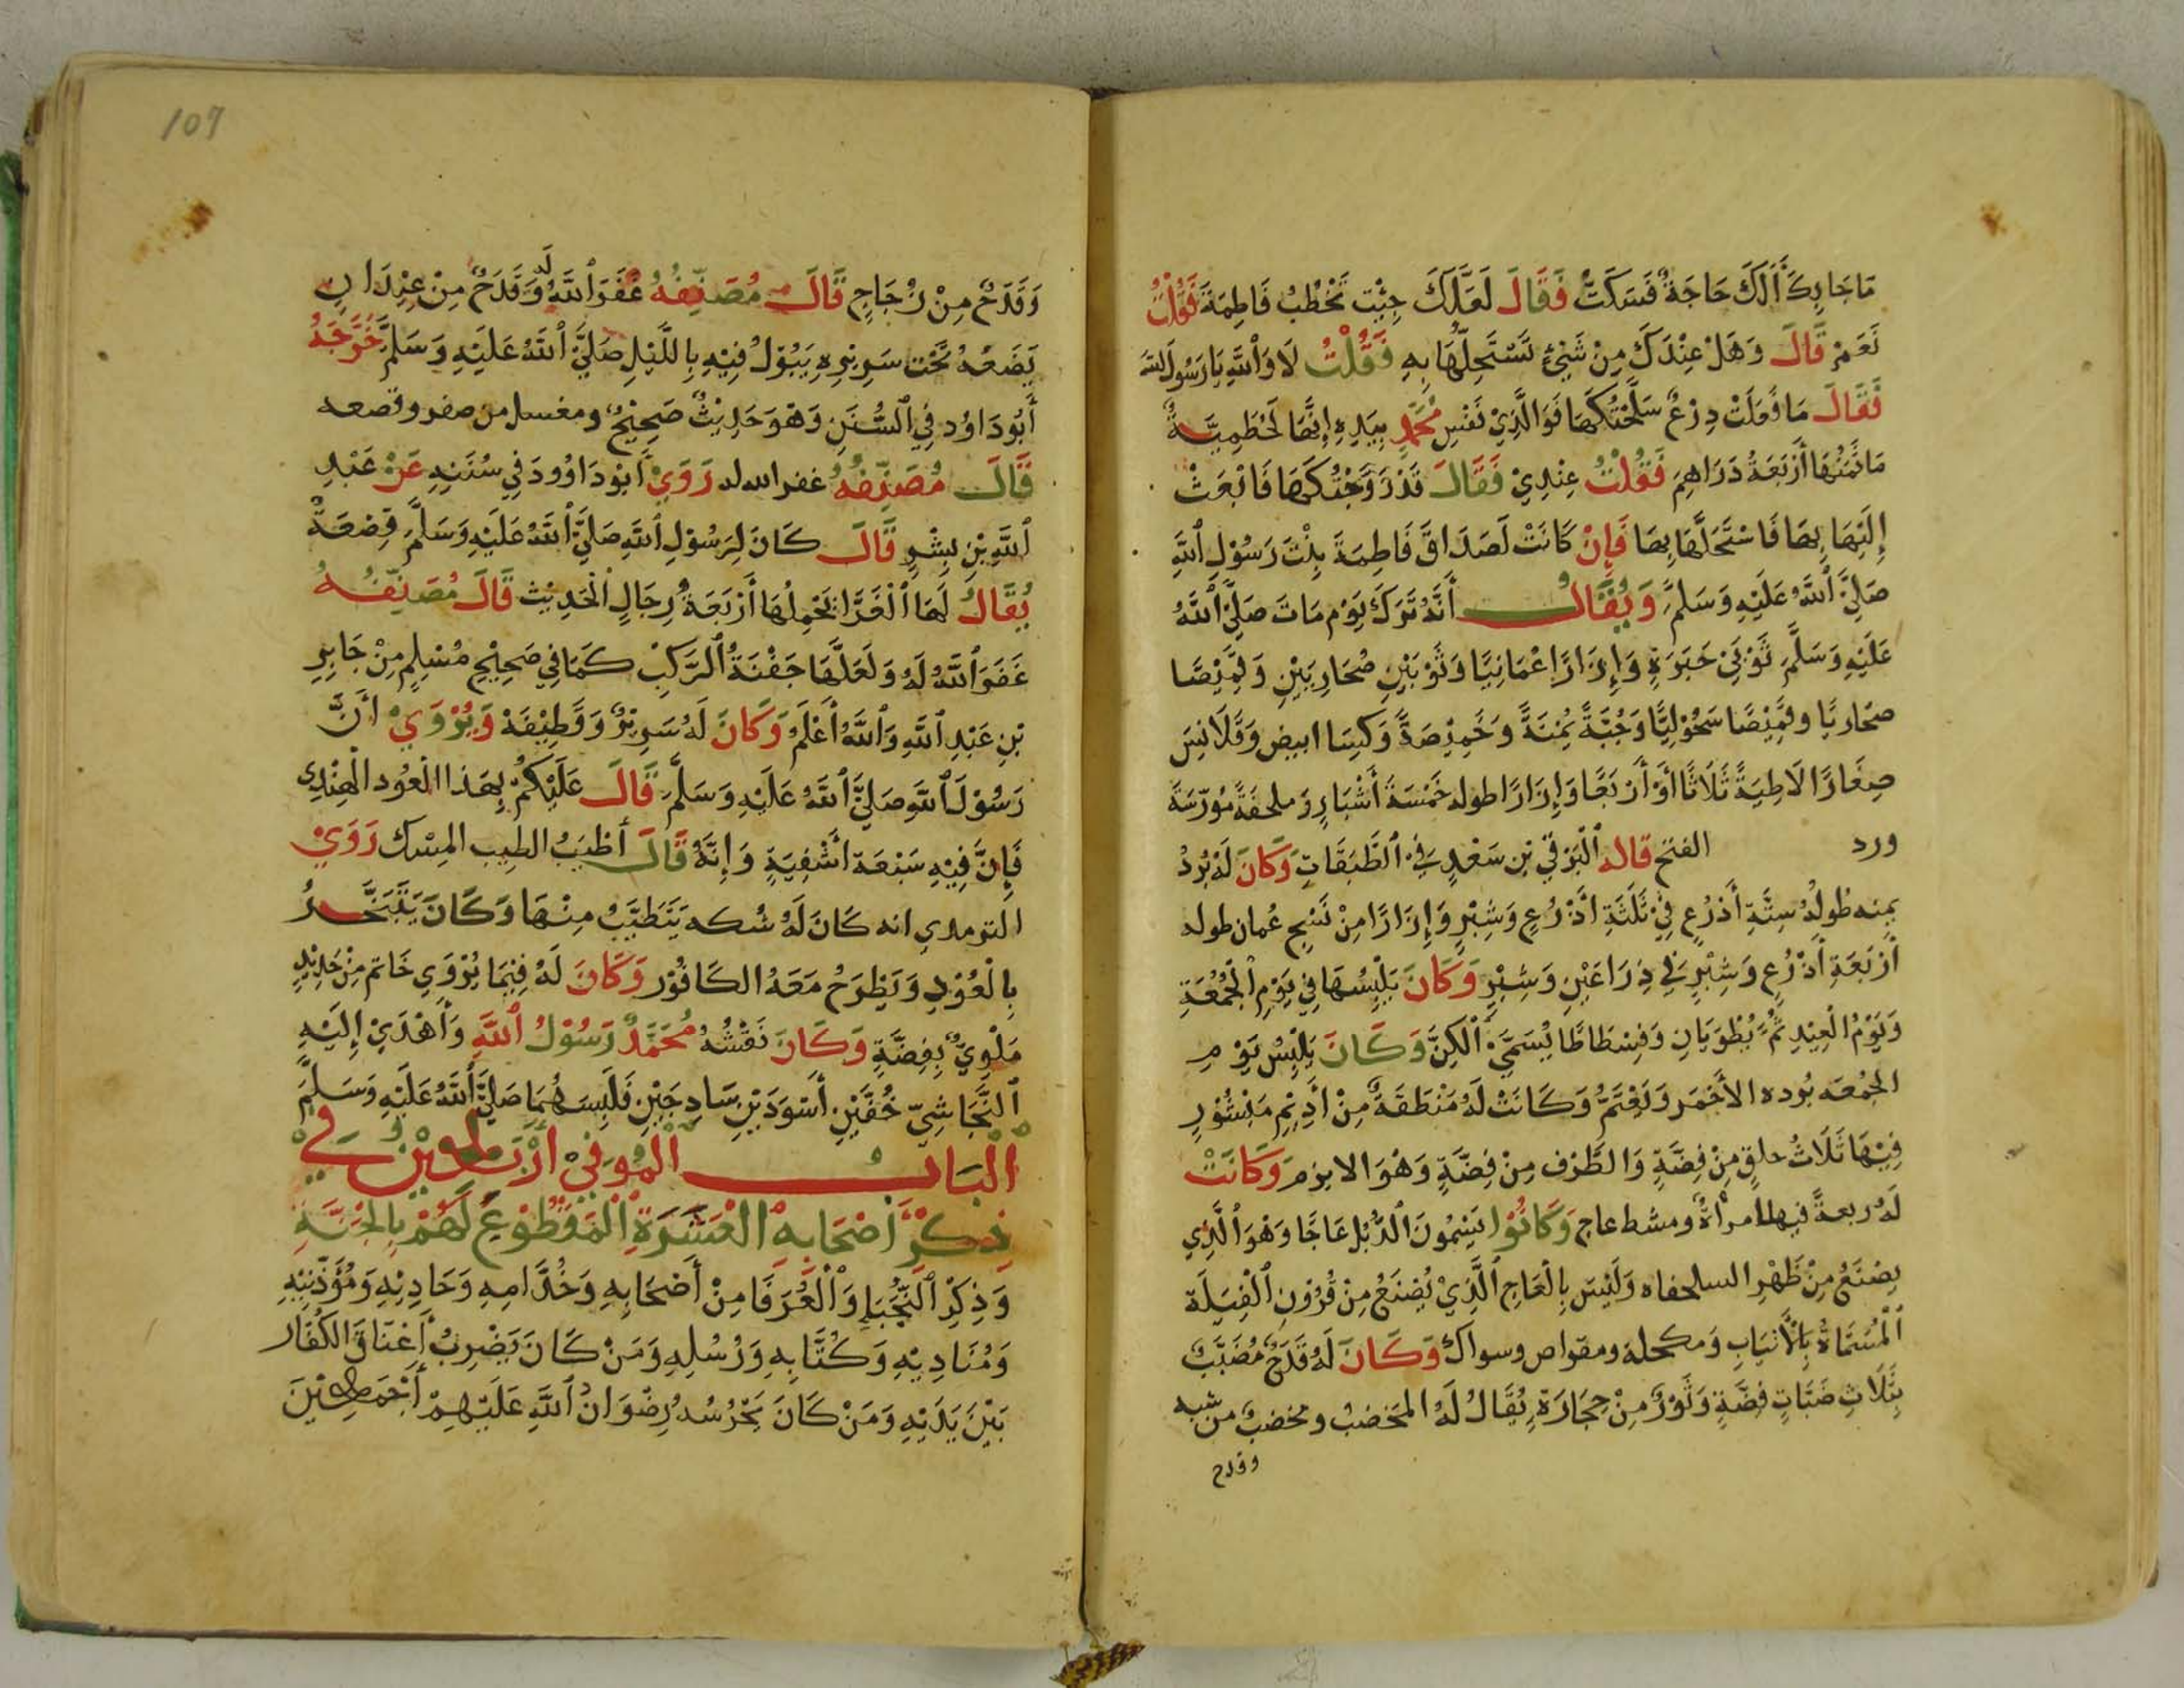 مَا جَا بِكَ أَلَكَ حَاجَةٌ فَسَكَتُّ فَقَالَ لَعَلَّكَ جِئْتَ تَخْطُبُ فَاطِمَةَ فَقُلْتُ
نَعَمْ قَالَ وَهَلْ عِنْدَكَ مِنْ شَيْئٍ تَسْتَحِلُّهَا بِهِ فَقُلْتُ لَا وَاللَّهِ يَا رَسُولَ اللَّه
فَقَالَ مَا فَعَلَتْ دِرْعٌ سَلَّحْتُكَهَا فَوَالَّذِيْ نَفْسِ مُحَمَّدٍ بِيَدِهِ إِنَّهَا لَحُطَمِيَّةٌ
مَا ثَمَنُهَا أَرْبَعَةُ دَرَاهِمَ فَقُلْتُ عِنْدِيْ فَقَالَ قَدْ زَوَّجْتُكَهَا فَابْعَثْ
إِلَيْهَا بِهَا فَاسْتَحِلَّهَا بِهَا فَإِنْ كَانَتْ لَصَدَاقَ فَاطِمَةَ بِنْتَ رَسُوْلِ اللَّهِ
صَلَّى اللَّهُ عَلَيْهِ وَسَلَّمَ وَيُقَالُ أَنَّهُ تَرَكَ يَوْمَ مَاتَ صَلَّى اللَّهُ
عَلَيْهِ وَسَلَّمَ ثَوْبَيْ حَبَرَةٍ وَإِزَارًا عُمَانِيًّا وَثَوْبَيْنِ صُحَارِيَيْنِ وَقَمِيْصًا
صحَارِيًا وقَمِيْصًا سَحُوْلِيًّا وَجُبَّةً يُمْنَةً وَخَمِيْصَةً وَكِيسَا ابيض وَقَلَانِسَ
صِغَارًا لَاطِيَةً ثَلَاثًا أَوْ أَرْبَعًا وَإِزَارًا طوله خَمْسَةَ أَشْبَارٍ وَملحفَةً مُوَرَّسَةً
ورد الفتح قاله الْبَرْقِي بْن سَعْدٍ فِي الطَّبَقَاتِ وَكَانَ لَهُ بُرْدُ
يمنه طُولُهُ سِتَّةِ أَذرُعٍ فِيْ ثَلَثَةِ اَذْرُعٍ وَشِبْرٍ وَإِزَارًا مِنْ نَسْجِ عُمان طوله
أَرْبَعَةِ أَذْرُعٍ وَشِبْرٍ فِي ذِرَاعَيْنِ وَشِبْرٍ وَكَانَ يَلْبِسُهَا فِي يَوْمِ الْجُمُعَةِ
وَيَوْمُ الْعِيْدِ ثُمَّ يُطْوَيَانِ وَفِسْطَاطًا يُسَمَّى الْكِنَّ وَكَانَ يَلْبِسُ يَوْمَ
الجُمْعَه بُوده الأَحْمَر وَيَعْتَمُّ وَكَانَتْ لَهُ مَنْطَقَةٌ مِنْ أَدِيْمٍ مَنْشُوْرٍ
فِيْهَا ثَلَاثُ حلقٍ مِنْ فِضَّةٍ وَالطَّرَف مِنْ فِضَّةٍ وَهُوَ الابزم وَكَانَتْ
لَهُ ربعةً فيها امرأةٌ ومشط عاج وَكَانُوْا يَسْمُونَ الذُّبْلَ عَاجًا وَهُوَ الَّذِي
يصْنَعُ مِنْ ظَهْرِ السلحفاه وَلَيْسَ بِالْعَاجِ الَّذِيْ يُصْنَعُ مِنْ قُرُوْنِ الْفِيَلَة
الْمُسَمَّاةُ بِالأَنْيَابِ وَمكحلة ومقراض وسواك وَكَانَ لَهُ قَدَحٌ مُضَبَّبٌ
بِثَلَاثِ ضَبَّاتٍ فِضَّةٍ وَتَوْرٌ مِنْ حِجَارَةٍ يُقَالُ لَهُ المَخضب ومخضبٌ من شبه
وقدح
107
وَقَدَحٌ مِنْ زُجَاجٍ قَالَ مُصَنِّفُهُ غَفَرَ اللَّهُ لَهُ وَقَدَحٌ مِنْ عِيْدَانٍ
يَضَعُهُ تَحْتَ سَرِيْرِهِ يَبُوْلُ فِيْهِ بِاللَّيْلِ صَلَّى اللَّهُ عَلَيْهِ وَسَلَّمَ خَرَّجَهُ
أَبُو دَاوُد فِي السُّنَنِ وَهُوَ حَدِيْثٌ صَحِيْحٌ ومغسل من صفر وقصعه
قَالَ مُصَنِّفُهُ غفر الله له رَوَى أَبُوْ دَاوُودَ فِي سُنَنِهِ عَنْ عَبْدِ
اللَّهِ بْنِ بِشْرٍ قَالَ كَانَ لِرَسُوْلِ اللَّهِ صَلَّى اللَّهُ عَلَيْهِ وَسَلَّمَ قِصْعَةٌ
يُقَالُ لَهَا الْغَرَّا يَحْمِلُهَا أَرْبَعَةُ رِجَالٍ الْحَدِيْث قَالَ مُصَنِّفُهُ
غَفَرَ اللَّهُ لَهُ وَلَعَلَّهَا جَفْنَةُ الرَّكْبِ كَمَا فِي صَحِيْحِ مُسْلِمٍ مِنْ جَابِرِ
بْنِ عَبْدِ اللَّهِ وَاللَّهُ أَعْلَمُ وَكَانَ لَهُ سَرِيْرٌ وَقَطِيْفَةْ وَيُرْوَى أَنَّ
رَسُوْلَ اللَّهِ صَلَّى اللَّهُ عَلَيْهِ وَسَلَّمَ قَالَ عَلَيْكُمْ بِهَذا الْعُوْد الْهِنْدِي
فَإِنَّ فِيْهِ سَبْعَة أَشْفِيَةٍ وَإِنَّهُ قَالَ أطْيَبُ الطيب المِسْك رَوَيْ
الترمدي انه كَانَ لَهُ سُكه يَتَطَيَّبُ مِنْهَا وَكَانَ يَتَبَخَّرُ
بِالْعُوْدِ وَيَطْرَحُ مَعَهُ الكَافُوْر وَكَانَ لَهُ فِيْمَا يُرْوَى خَاتَم مِنْ حَدِيْدٍ
مَلْوِيٌّ بِفِضَّةٍ وَكَانَ نَقْشُهُ مُحَمَّدٌ رَسُوْلُ اللَّهِ وَأَهْدَيْ إِلَيْهِ
النَّجَاشِيّ خُفَّيْنِ أَسْوَدَيْنِ سَادِجَيْنِ فَلَبِسَهُمَا صَلَّى اللَّهُ عَلَيْهِ وَسَلَّمَ
الْبَابُ الْمُوَفِيْ أَرْبَعِيْنَ فِيْ
ذِكْرِ أَصْحَابِهِ الْعَشَرَةِ الْمَقْطُوْعِ لَهُمْ بِالْجَنَّةِ
وَذِكْرِ النُّجَبَاءِ وَالْعُرَفَا مِنْ أَصْحَابِهِ وَخُدَّامِهِ وَحَادِيْهِ وَمُؤَذِّنِيْهِ
وَمُنَادِيْهِ وَكُتَّابِهِ وَرُسُلِهِ وَمَنْ كَانَ يَضْرِبُ أَعْنَاقَ الكُفَّار
بَيْنَ يَدَيْهِ وَمَنْ كَانَ يَحْرُسُهُ رِضْوَانُ اللَّهِ عَلَيْهِمْ أَجْمَعِيْنَ